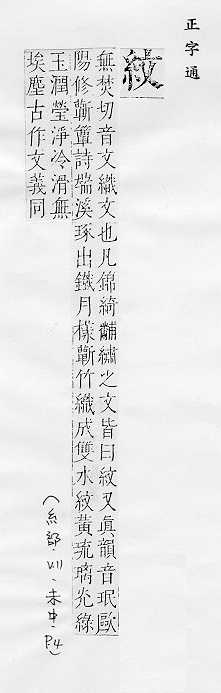 正字通
紋
無焚切音文織文也凡錦綺黼繡之文皆曰紋又眞韻音珉歐
陽修蘄簟詩端溪琢出缺月樣蘄竹織成雙水紋黃琉璃光綠
玉潤瑩淨冷滑無
埃塵古作文義同
(糸部·VII·未中·P4)